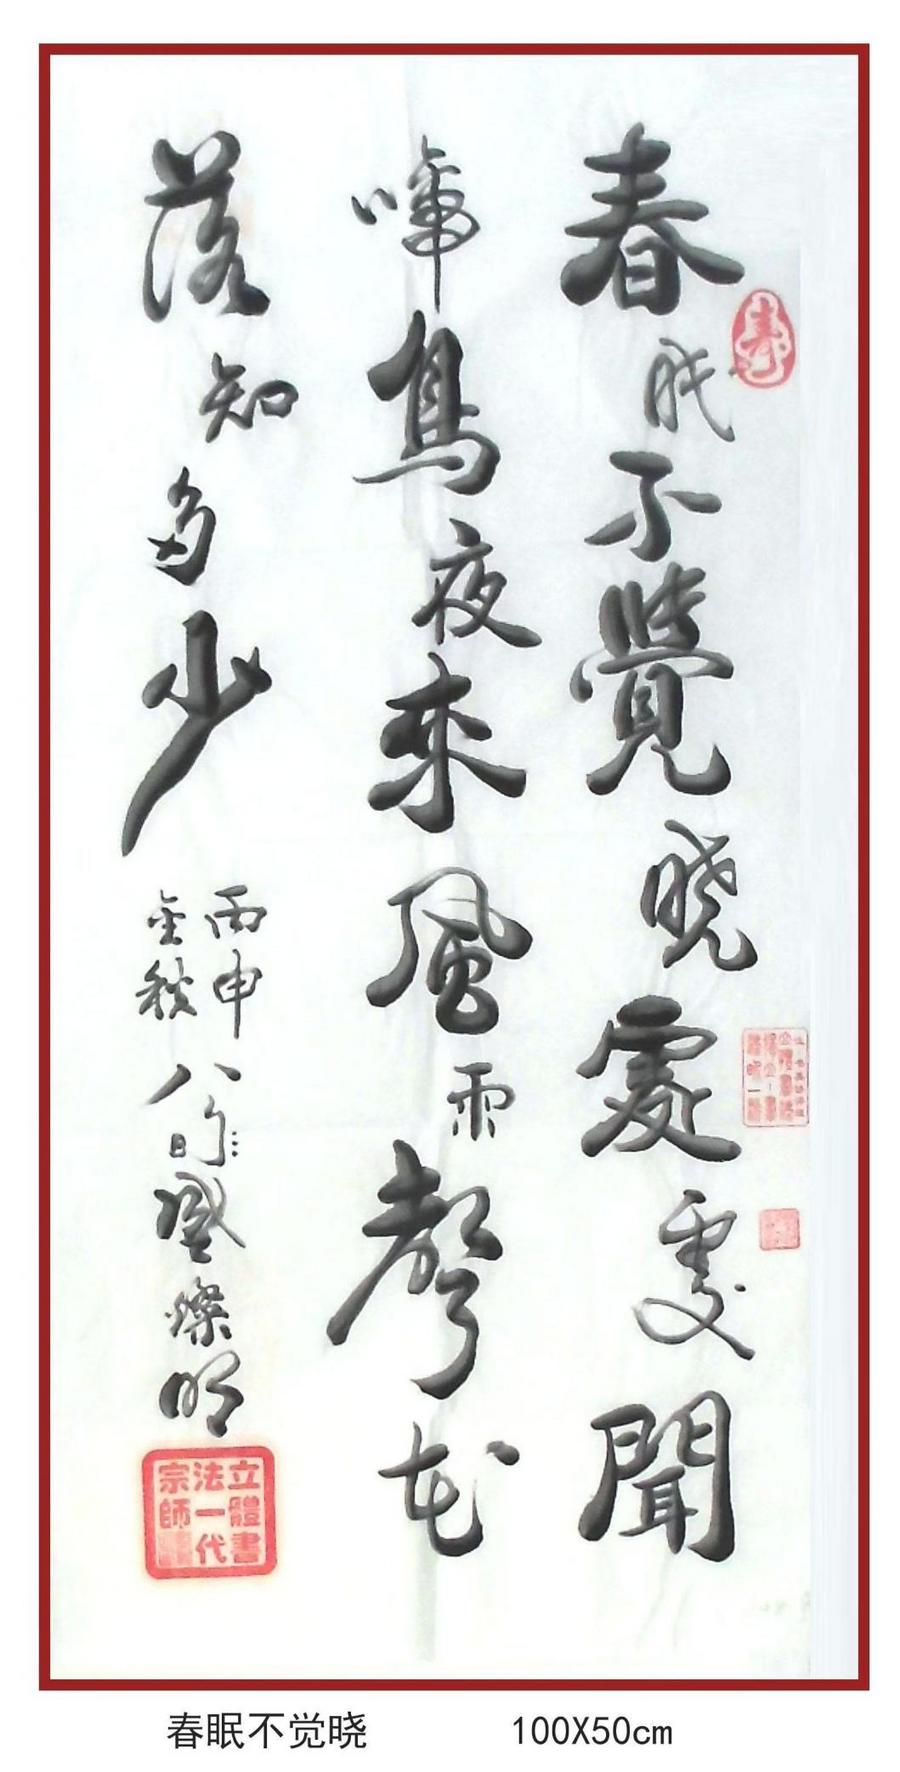 春眠不覺曉處處聞
啼鳥夜來風雨聲花
落知多少
丙申
金秋
八旬
盛燦明
壽
立體書
法一代
宗師
春眠不觉晓 100X50cm